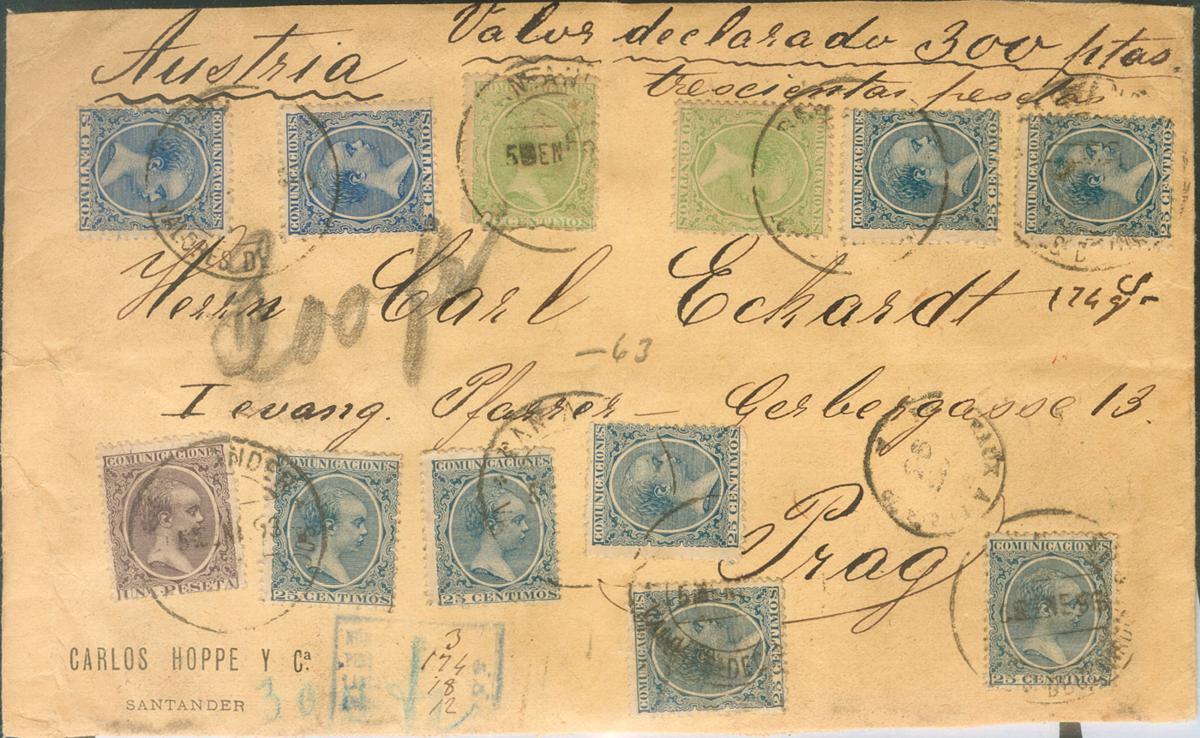 Austria
Valor declarado 300 ptas.
trescientas pesetas
COMUNICACIONES
5 CENTIMOS
COMUNICACIONES
5 CENTIMOS
COMUNICACIONES
CENTIMOS
COMUNICACIONES
CENTIMOS
COMUNICACIONES
25 CENTIMOS
COMUNICACIONES
25 CENTIMOS
5 EN
VALORES D
Herrn Carl Eckardt 174 g
—63
I evang. Pfarrer — Gerbergasse 13
COMUNICACIONES
UNA PESETA
COMUNICACIONES
25 CENTIMOS
COMUNICACIONES
25 CENTIMOS
COMUNICACIONES
25 CENTIMOS
Prag
COMUNICACIONES
25 CENTIMOS
COMUNICACIONES
25 CENTIMOS
CARLOS HOPPE Y Cª
SANTANDER
30
3
174
18
12